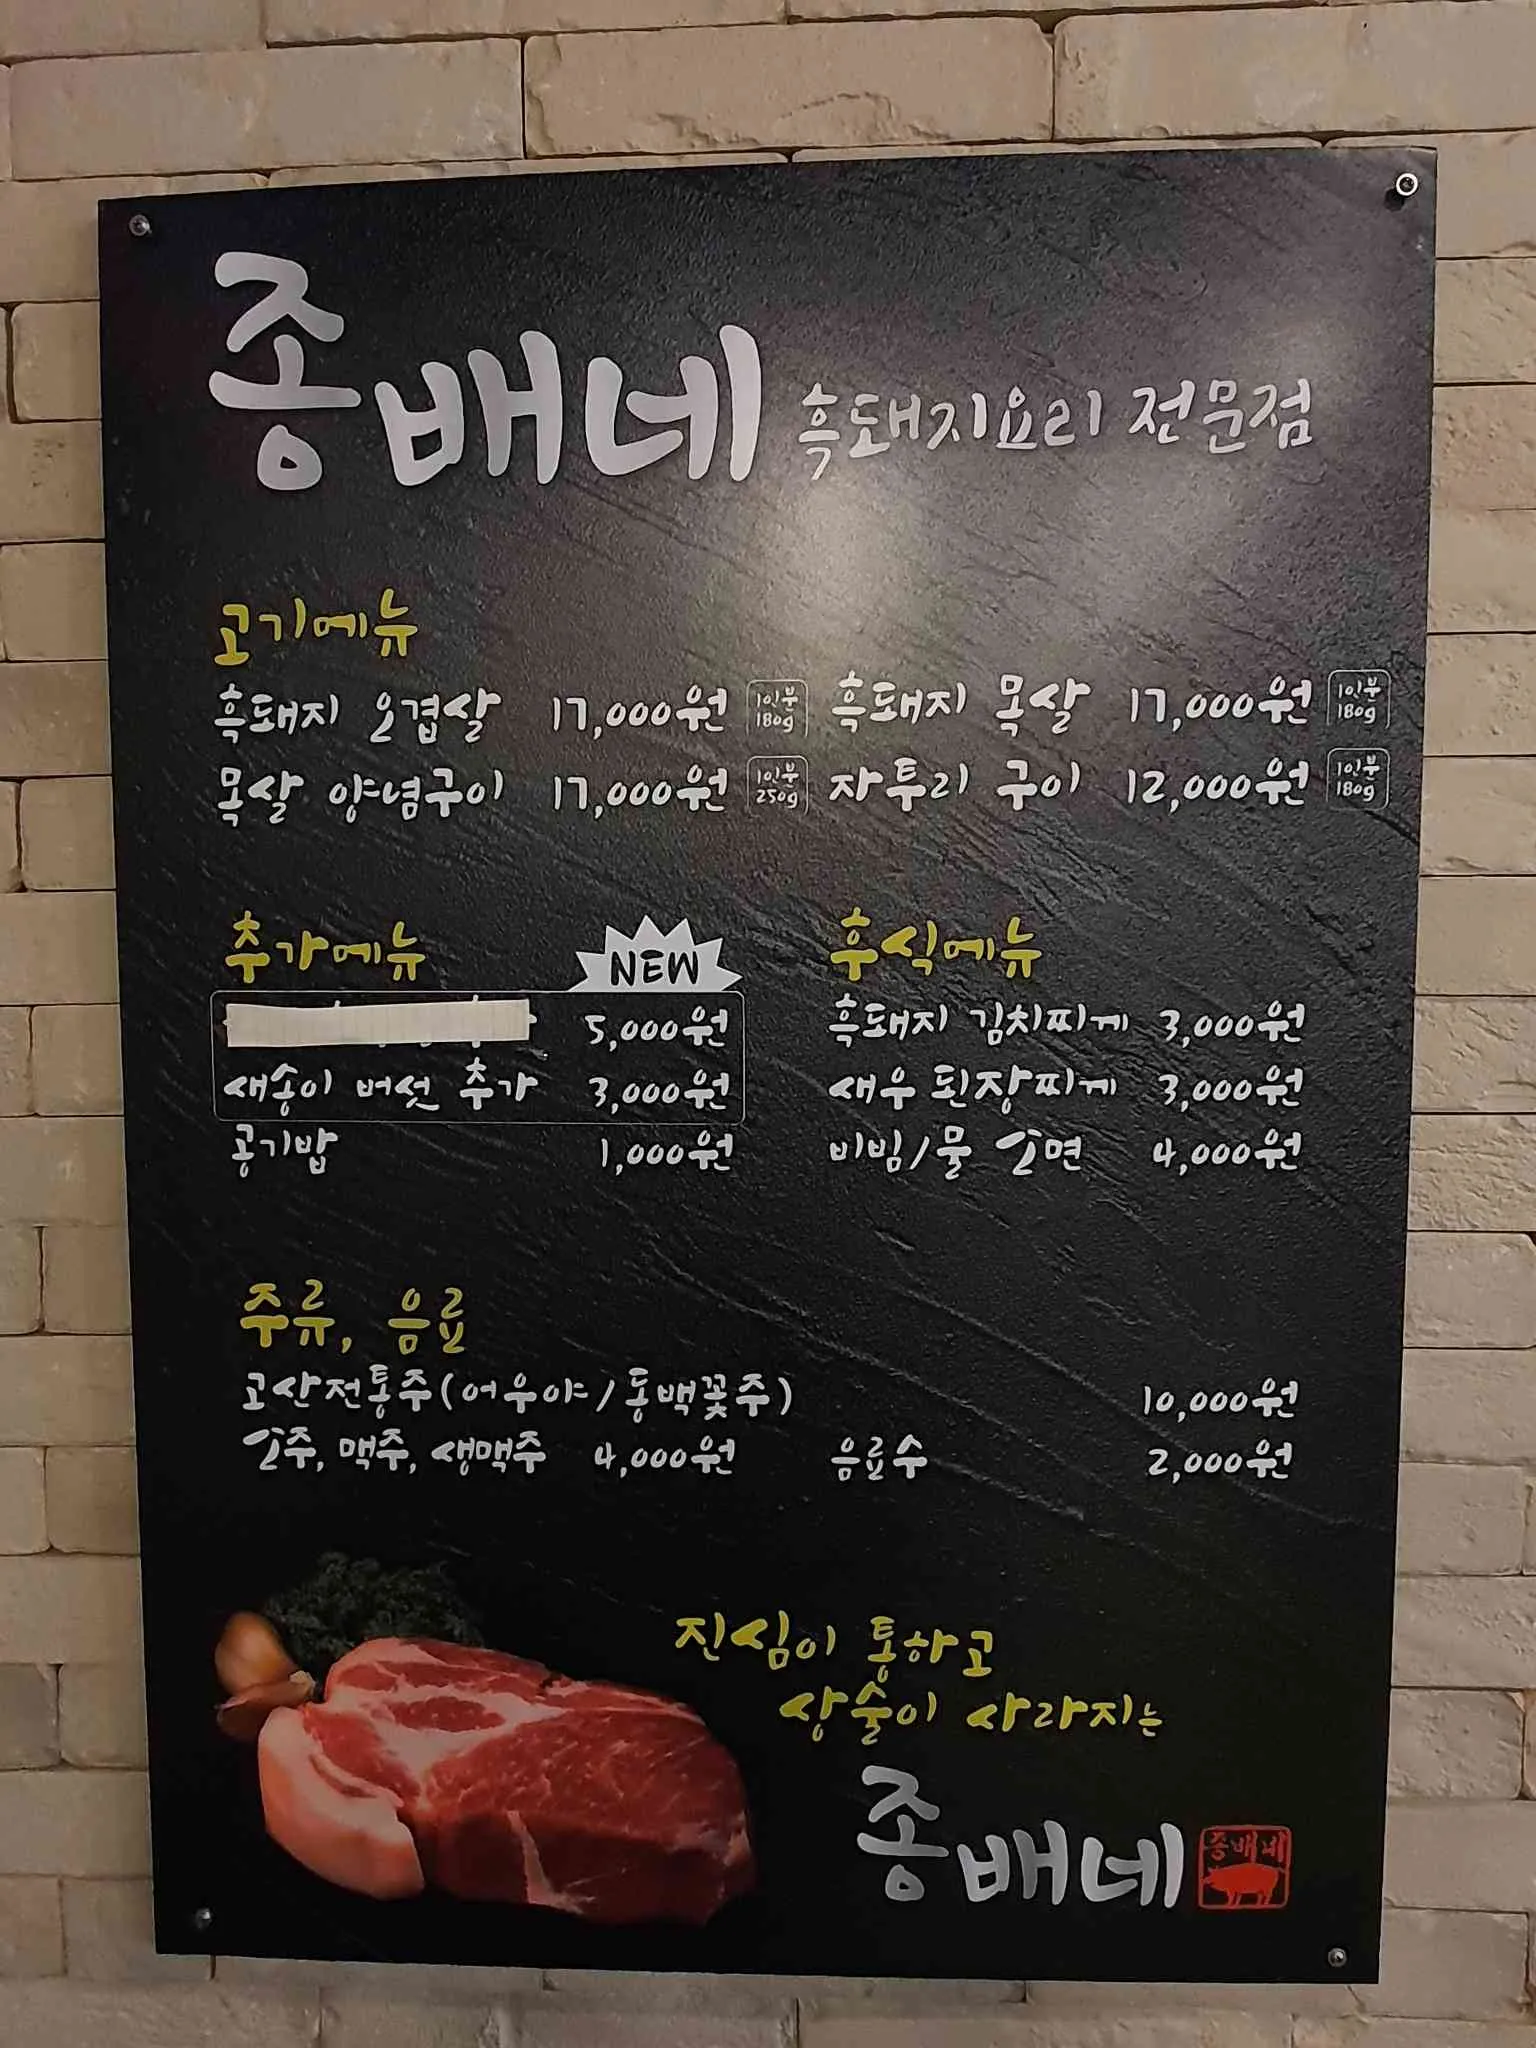 종배네 흑돼지요리 전문점
고기메뉴
흑돼지 오겹살 17,000원 1인분 180g 흑돼지 목살 17,000원 1인분 180g
목살 양념구이 17,000원 1인분 250g 자투리 구이 12,000원 1인분 180g
추가메뉴 NEW
5,000원
새송이 버섯 추가 3,000원
공기밥 1,000원
후식메뉴
흑돼지 김치찌게 3,000원
새우 된장찌게 3,000원
비빔/물 소면 4,000원
주류, 음료
고산전통주(어우야/동백꽃주) 10,000원
소주, 맥주, 생맥주 4,000원 음료수 2,000원
진심이 통하고
상술이 사라지는
종배네
종배네